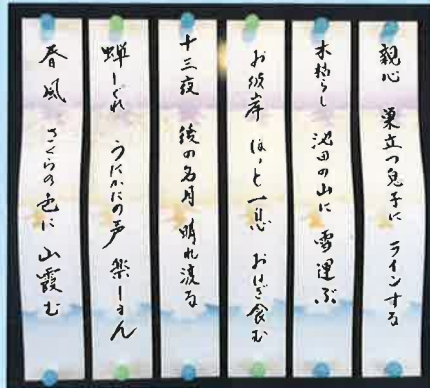 親心 巣立つ息子に ラインする
木枯らし 池田の山に 雪運ぶ
お彼岸 ほっと一息 おはぎ食む
十三夜 後の名月 晴れ渡る
蝉しぐれ うたかたの声 楽しまん
春風 さくらの色に 山霞む